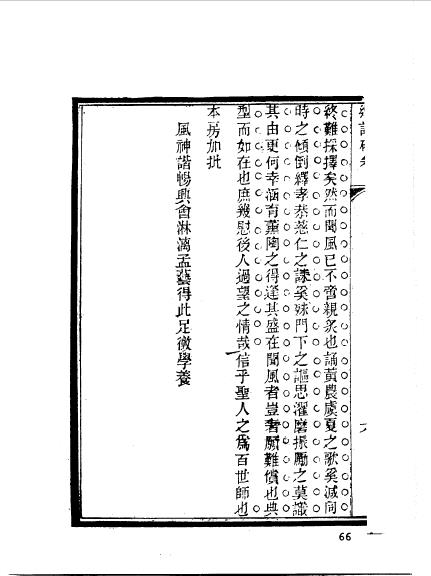 終難採擇矣然而聞風已不啻親炙也誦黃農虞夏之歌奚減同
時之傾倒繹孝恭慈仁之謀奚殊門下之謳思濯磨振勵之莫識
其由更何幸涵育薰陶之得逢其盛在聞風者豈耆願難償也典
型而如在也庶幾慰後人過望之情哉信乎聖人之為百世師也
本房加批
風神諧暢興會淋漓孟藝得此足徵學養
66